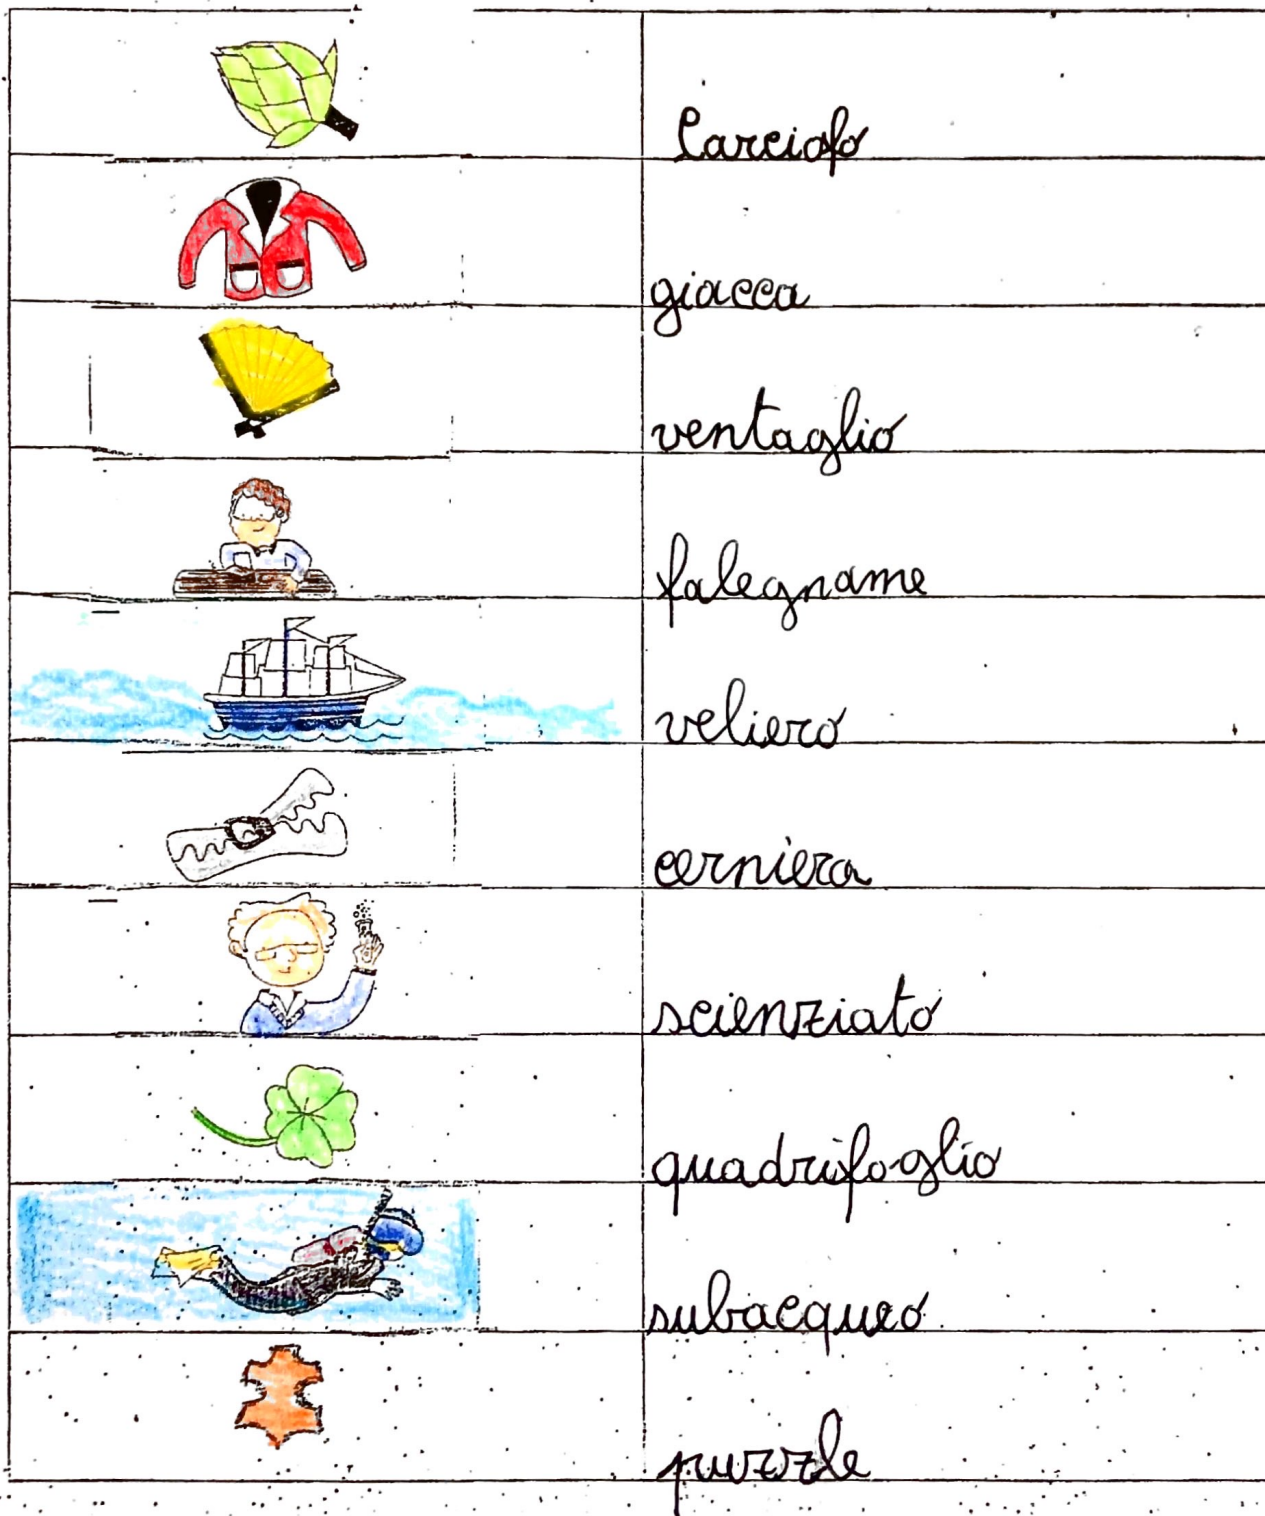 Carciofo
giacca
ventaglio
falegname
veliero
cerniera
scienziato
quadrifoglio
subacqueo
puzzle